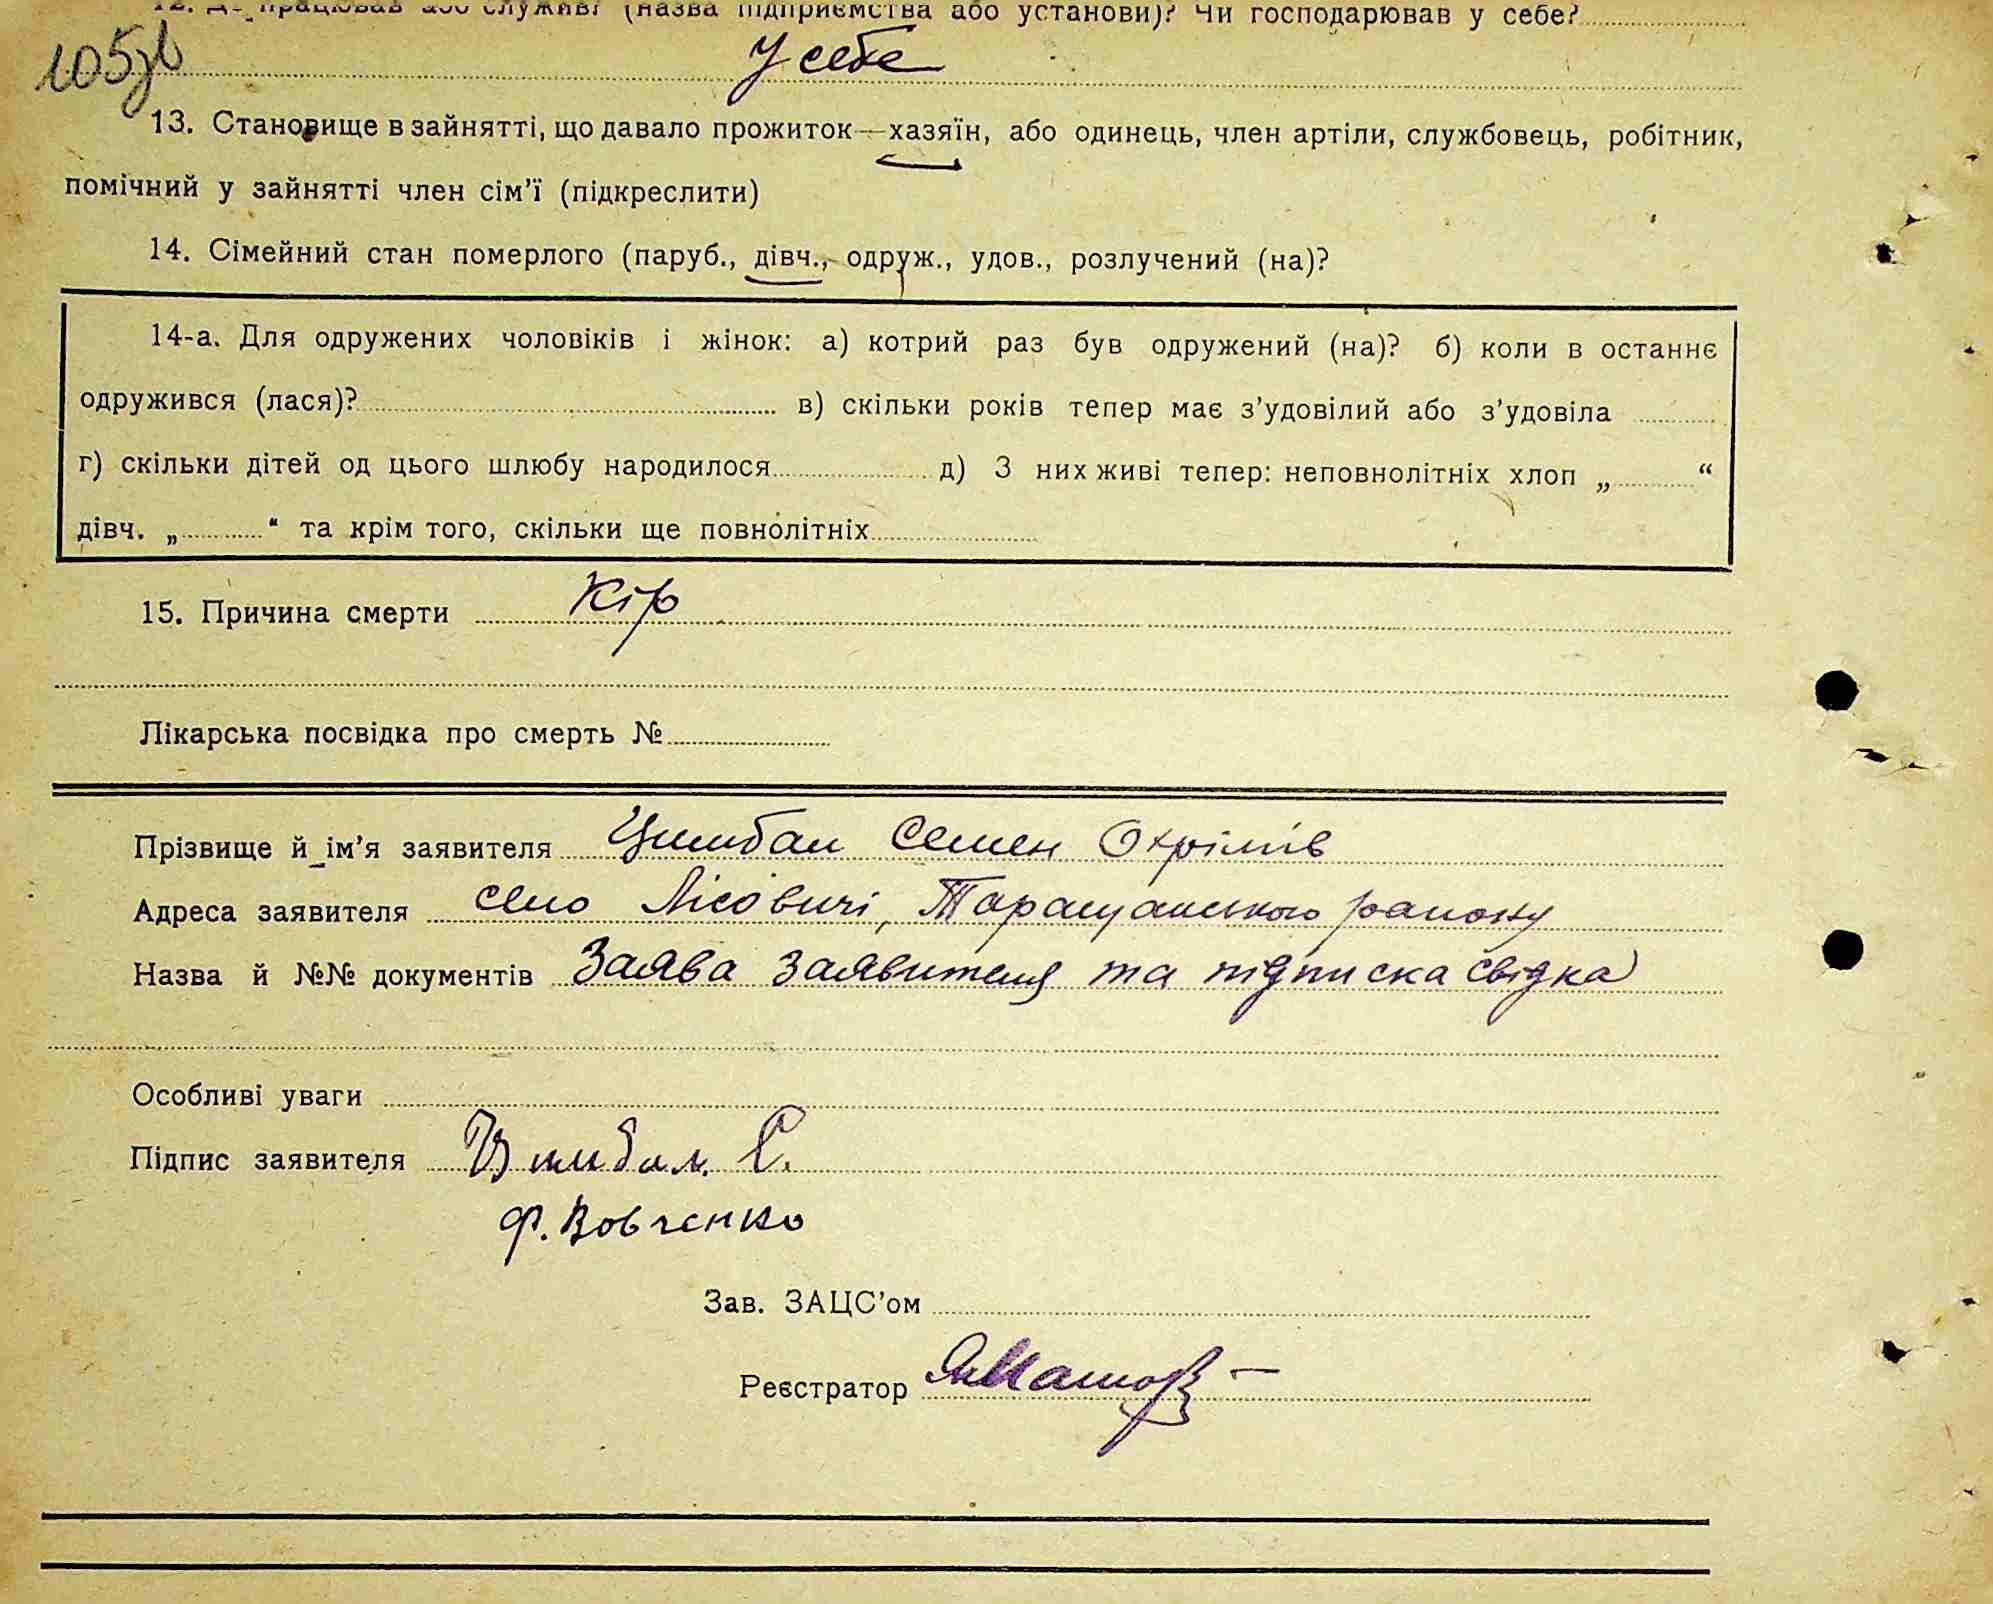 12. Де працював або служив (назва підприємства або установи)? Чи господарював у себе?
105зв
У себе
13. Становище в зайнятті, що давало прожиток—хазяїн, або одинець, член артіли, службовець, робітник,
помічний у зайнятті член сім’ї (підкреслити)
14. Сімейний стан померлого (паруб., дівч., одруж., удов., розлучений (на)?
14-а. Для одружених чоловіків і жінок: а) котрий раз був одружений (на)? б) коли в останнє
одружився (лася)? в) скільки років тепер має з’удовілий або з’удовіла
г) скільки дітей од цього шлюбу народилося д) З них живі тепер: неповнолітніх хлоп „ “
дівч. „ “ та крім того, скільки ще повнолітніх
15. Причина смерти Кір
Лікарська посвідка про смерть №
Прізвище й ім’я заявителя Цимбал Семен Охрімів
Адреса заявителя село Лісовичі, Таращанського району
Назва й №№ документів Заява заявителя та підписка свідка
Особливі уваги
Підпис заявителя Цимбал С.
Ф. Вовченко
Зав. ЗАЦС’ом
Реєстратор